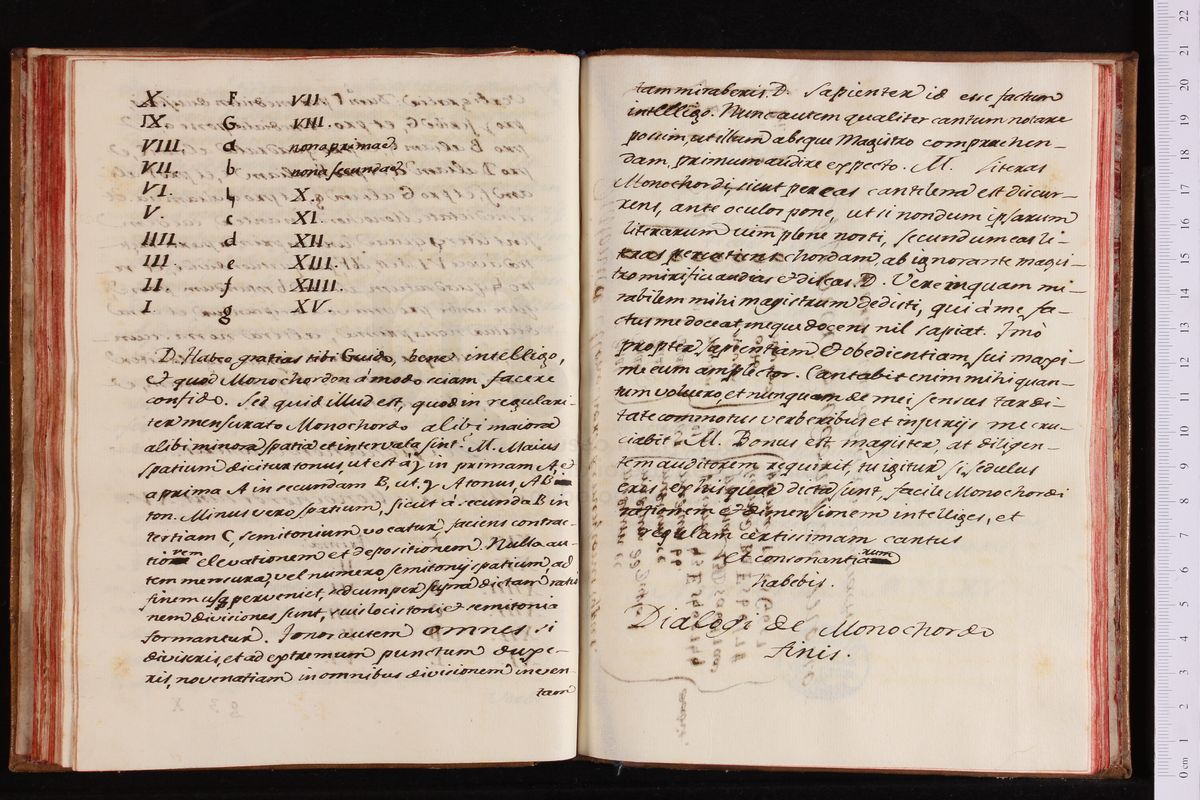 X. F VII.
IX. G VIII.
VIII. a nona primae
VII. b nona secundae
VI. h X.
V. c XI.
IIII. d XII
III. e XIII.
II. f XIIII.
I. g XV.
D. Habeo gratias tibi Guido, bene intelligo,
et quod Monochordon à modo sciam facere
confido. Sed quid illud est, quod in regulari-
ter mensurato Monochordo alibi maiora
alibi minora spatia et intervala sint. M. Maius
spatium dicitur tonus, ut est à γ in primam A, et
a prima A in secundam B, ut. γ A tonus, AB
ton. Minus vero spatium, sicut à secunda B in
tertiam C, semitonium vocatur, faciens contrac-
tiorem elevationem et depositionem. Nulla au-
tem mensura, vel numero semitonij spatium ad
finem usq perveniet, sed cum per dictam ratio
nem divisiones fiunt, suis locis toni et semitonia
formantur. Tonos autem omnes si
diviseris, et ad extremum punctum duxe-
ris, novenariam in omnibus divisionem inven-
tam
tam miraberis. D. Sapienter id esse factum
intelligo. Nunc autem qualiter cantum notare
possum, ut illum absque Magistro comprehen-
dam, primum audire expecto. M. Literas
Monochordi, sicut per eas cantilena est discur-
rens, ante oculos pone, ut si nondum ipsarum
literarum vim plene nosti, secundum eas li-
teras percutiens chordam, ab ignorante magis-
tro mirifice audias et discas. D. Vere inquam mi-
rabilem mihi magistrum dedisti, qui à me fa-
ctus me doceat, meque docens nil sapiat. Imò
propter sapientiam et obedientiam sui maxi-
me eum amplector. Cantabit enim mihi quan-
tum voluero, et nunquam de mei sensus tardi-
tate commotus verberibus et iniurijs me cru-
ciabit. M. Bonus est magister, at diligen-
tem auditorem requirit, tu igitur si sedulus
eris ex his quae dicta sunt, facile Monochordi
rationem et dimensionem intelliges, et
regulam certissimam cantus
et consonantiarum
habebis.
Dialogi de Monochordo
finis.